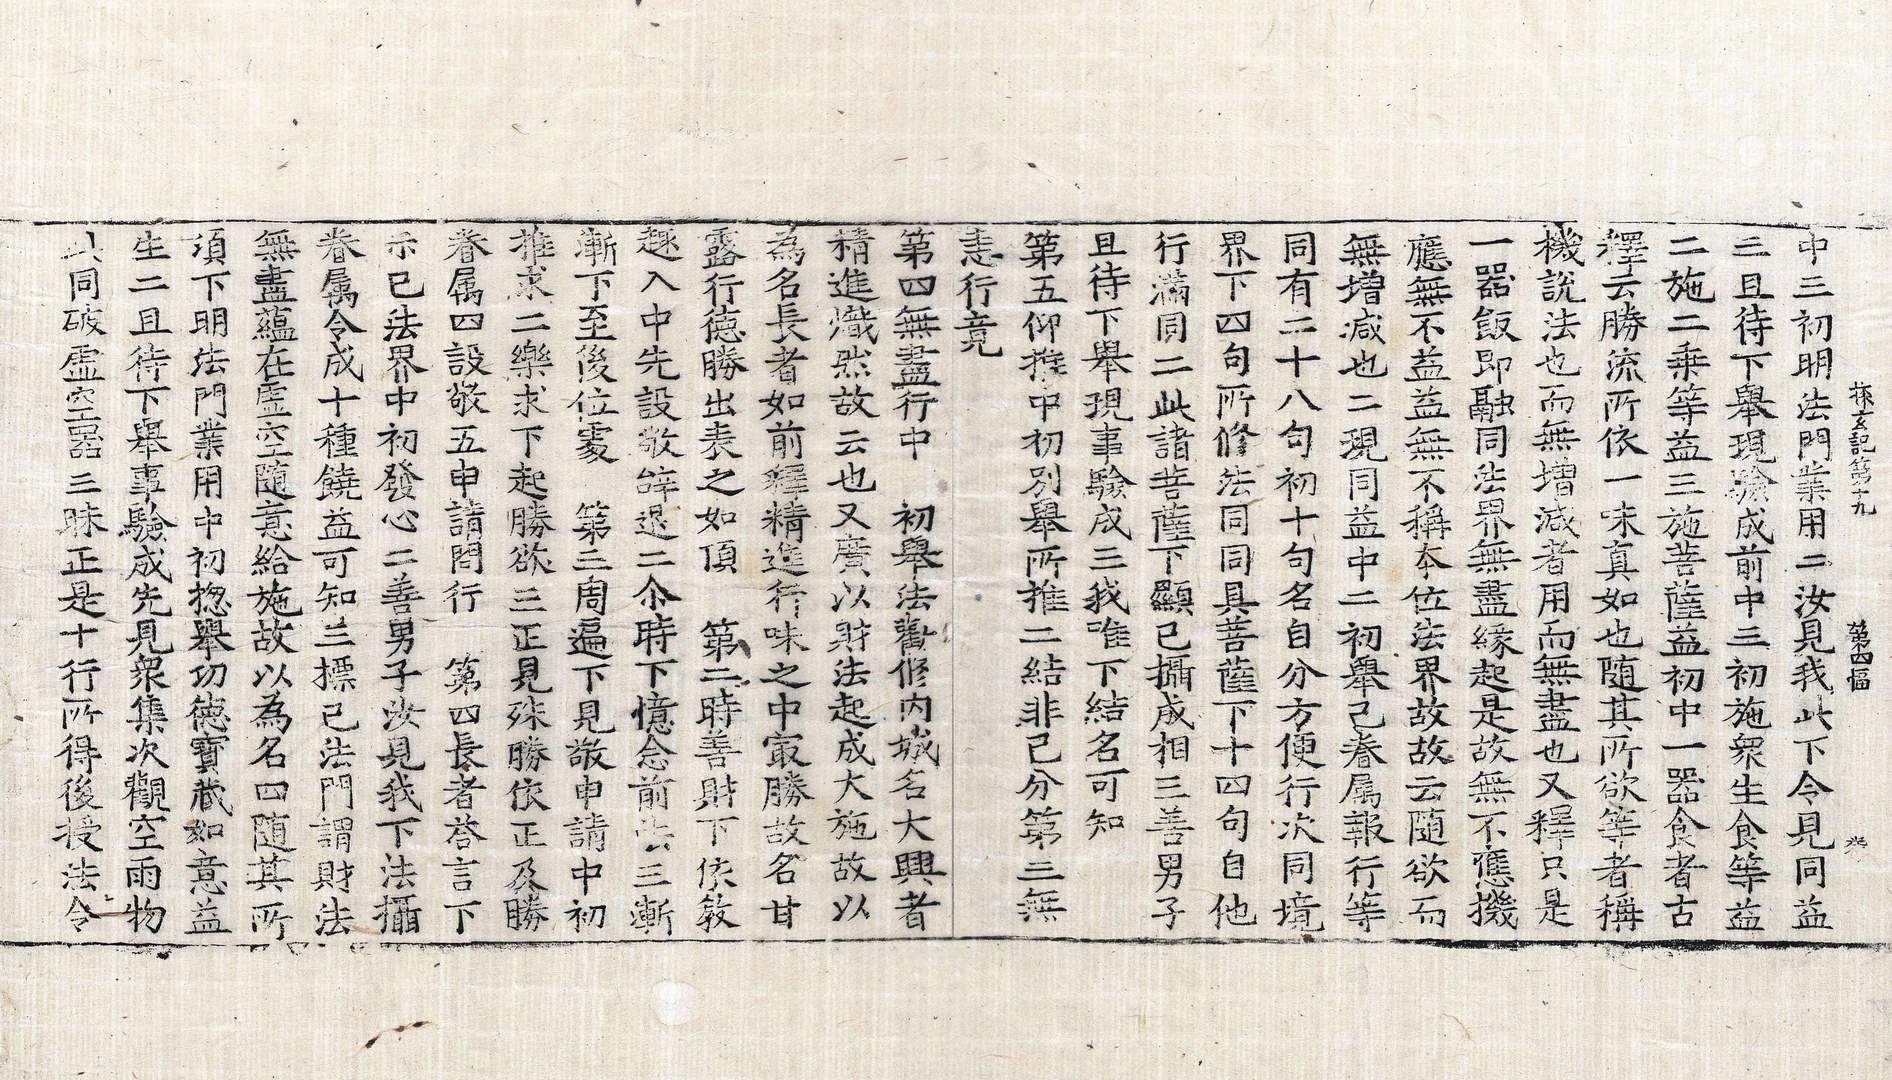 探玄記第十九　第四幅
中三初明法門業用二汝見我此下令見同益
三且待下舉現驗成前中三初施衆生食等益
二施二乗等益三施菩薩益初中一器食者古
釋云勝流所依一味真如也隨其所欲等者稱
機說法也而無增減者用而無盡也又釋只是
一器飯即融同法界無盡緣起是故無不應機
應無不益益無不稱本位法界故故云隨欲而
無增減也二現同益中二初舉己眷属報行等
同有二十八句初十句名自分方便行次同境
界下四句所修法同同具菩薩下十四句自他
行滿同二此諸菩薩下顯己攝成相三善男子
且待下舉現事驗成三我唯下結名可知
第五仰推中初別舉所推二結非己分第三無
恚行竟
第四無盡行中　初舉法勸修内城名大興者
精進熾然故云也又廣以財法起成大施故以
為名長者如前釋精進行味之中冣勝故名甘
露行德勝出表之如頂　第二時善財下依敎
趣入中先設敬辞退二尒時下憶念前法三漸
漸下至後位處　第三周遍下見敬申請中初
推求二樂求下起勝欲三正見殊勝依正及勝
眷属四設敬五申請問行　第四長者荅言下
示已法界中初發心二善男子汝見我下法攝
眷属令成十種饒益可知三標己法門謂財法
無盡藴在虚空隨意給施故以為名四隨其所
須下明法門業用中初揔舉功德寶藏如意益
生二且待下舉事驗成先見衆集次觀空雨物
此同破虚空器三昧正是十行所得後授法令